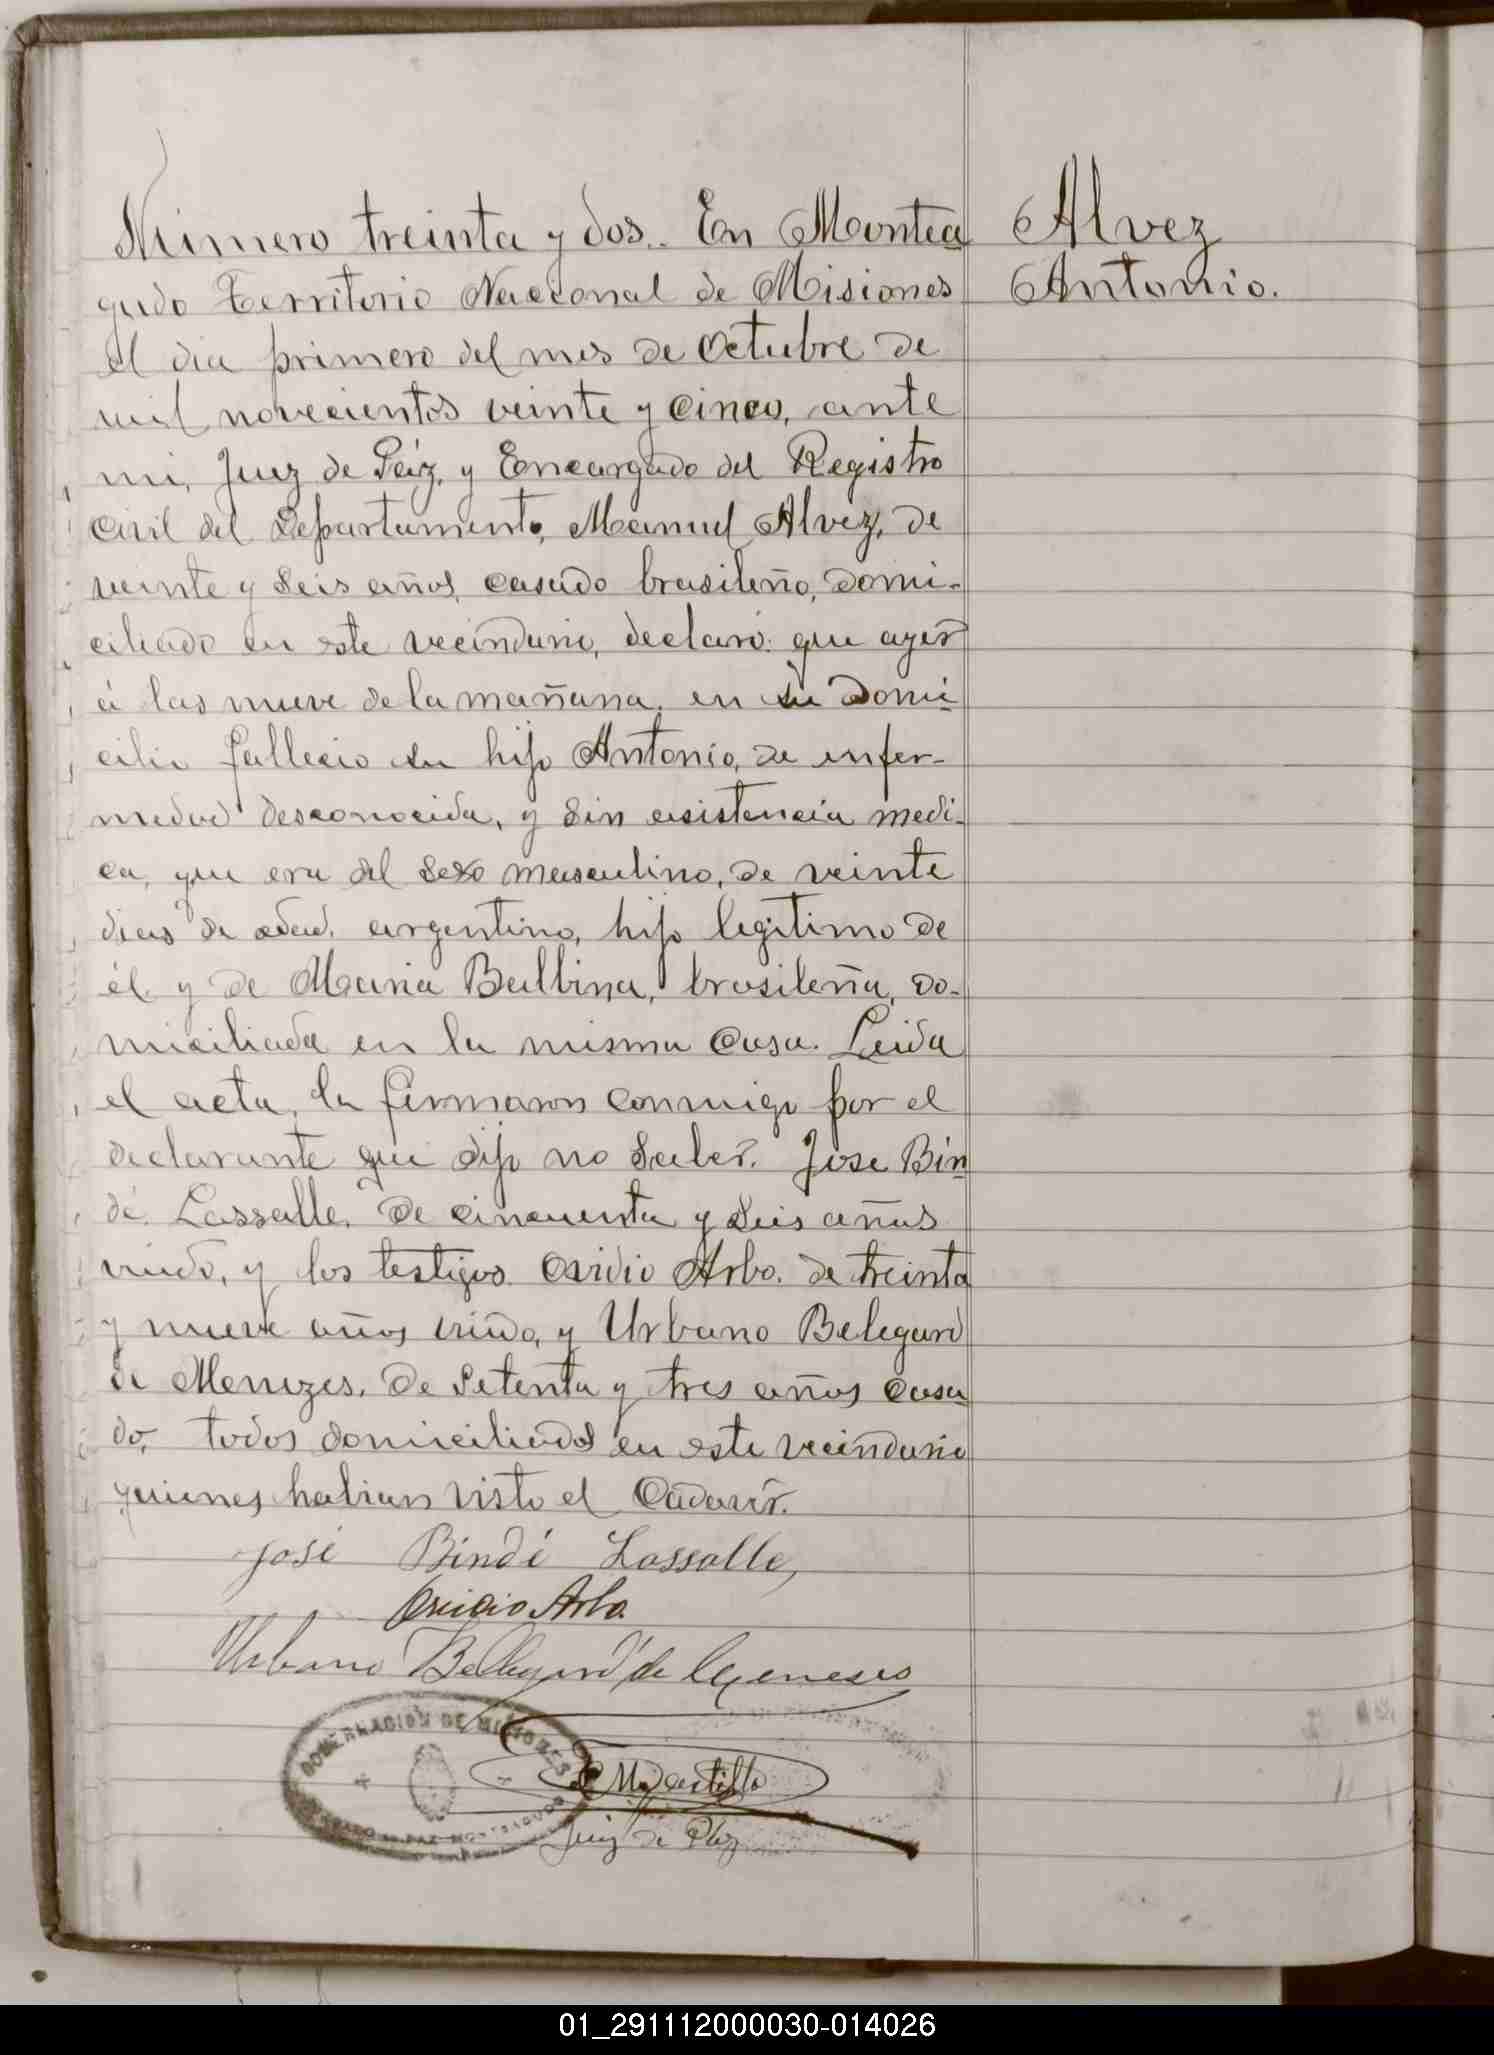 Número treinta y dos. En Montea
gudo Territorio Nacional de Misiones
el dia primero del mes de Octubre de
mil novecientos veinte y cinco, ante
mi, Juez de Páz, y Encargado del Registro
Civil del Departamento, Manuel Alvez, de
veinte y seis años, casado brasileño, domi-
ciliado en este vecindario, declaró: que ayer
á las nueve de la mañana, en su domi-
cilio fallecio su hijo Antonio, de enfer-
medad desconocida, y sin asistencia medi-
ca, que era del sexo masculino, de veinte
dias de edad, argentino, hijo legitimo de
él y de Maria Balbina, brasileña, do-
miciliada en la misma casa. Leida
el acta, la firmaron conmigo por el
declarante que dijo no saber. Jose Bin
dé Lassalle, de cincuenta y seis años
viudo, y los testigos Ovidio Arbo, de treinta
y nueve años viudo, y Urbano Belegard
de Menezes, de setenta y tres años casa
do, todos domiciliados en este vecindario
quienes habian visto el Cadaver.
José Bindé Lassalle,
Ovidio Arbo
Urbano Bellegard de Menezes
GOBERNACION DE MISIONES
JUZGADO DE PAZ MONTEAGUDO
Castillo
Juez de Paz
Alvez
Antonio.
01_291112000030-014026